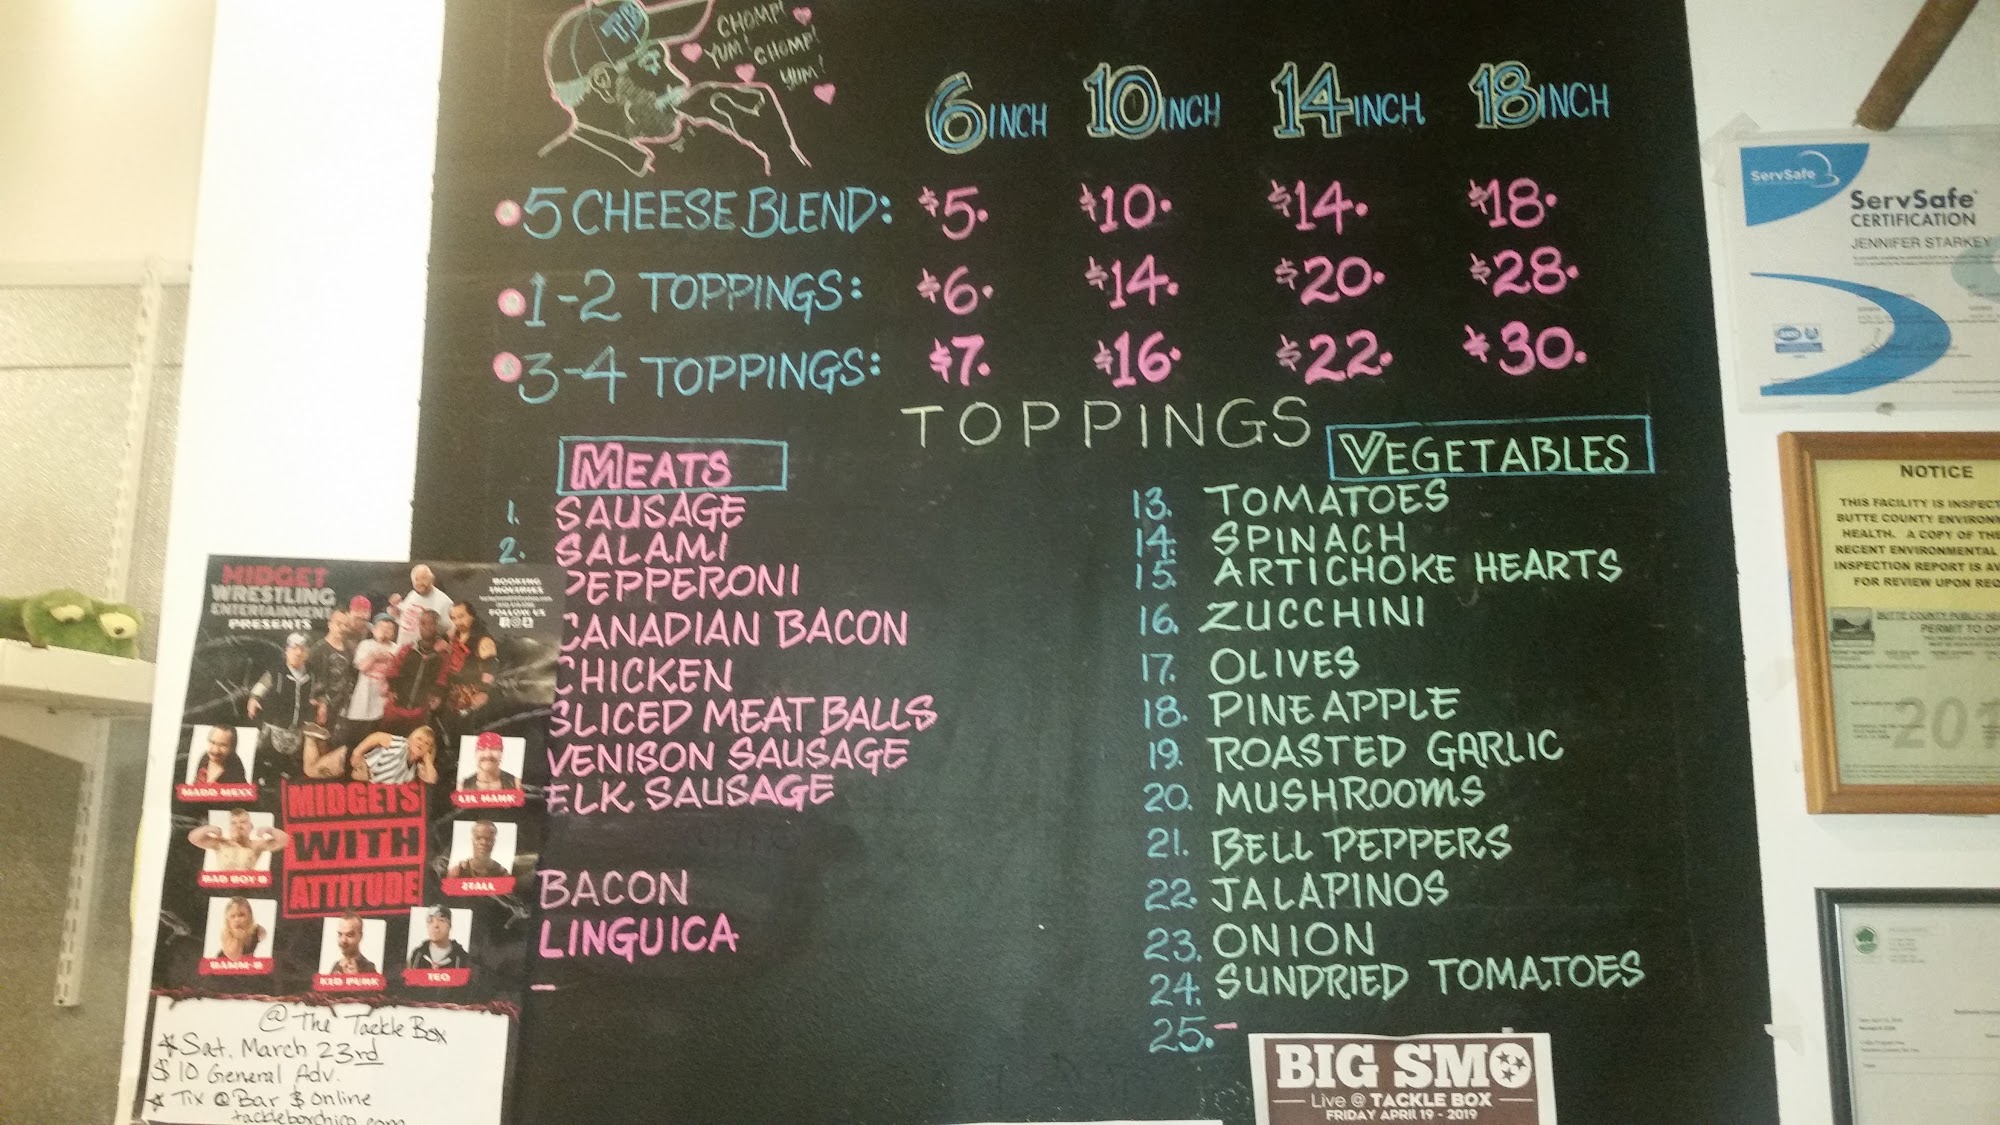 CHOMP!
YUM!
CHOMP!
YUM!
TB
6 INCH 10 INCH 14 INCH 18 INCH
5 CHEESE BLEND: $5. $10. $14. $18.
1-2 TOPPINGS: $6. $14. $20. $28.
3-4 TOPPINGS: $7. $16. $22. $30.
TOPPINGS
MEATS
1. SAUSAGE
2. SALAMI
PEPPERONI
CANADIAN BACON
CHICKEN
SLICED MEAT BALLS
VENISON SAUSAGE
ELK SAUSAGE
BACON
LINGUICA
-
VEGETABLES
13. TOMATOES
14. SPINACH
15. ARTICHOKE HEARTS
16. ZUCCHINI
17. OLIVES
18. PINEAPPLE
19. ROASTED GARLIC
20. MUSHROOMS
21. BELL PEPPERS
22. JALAPINOS
23. ONION
24. SUNDRIED TOMATOES
25. -
MIDGET
WRESTLING
ENTERTAINMENT
PRESENTS
BOOKING
INQUIRIES
FOLLOW US
MADD MEXX
LIL HANK
MIDGETS
WITH
ATTITUDE
BAD BOY B
BAMM-B
KID PUNK
TEO
@ The Tackle Box
Sat. March 23rd
$10 General Adv.
Tix @ Bar & Online
tackleboxchico.com
BIG SMO
Live @ TACKLE BOX
FRIDAY APRIL 19 - 2019
ServSafe
ServSafe
CERTIFICATION
JENNIFER STARKEY
NOTICE
THIS FACILITY IS INSPECT
BUTTE COUNTY ENVIRON
HEALTH. A COPY OF THE
RECENT ENVIRONMENTAL
INSPECTION REPORT IS AV
FOR REVIEW UPON REQ
BUTTE COUNTY PUBLIC HE
PERMIT TO OP
201